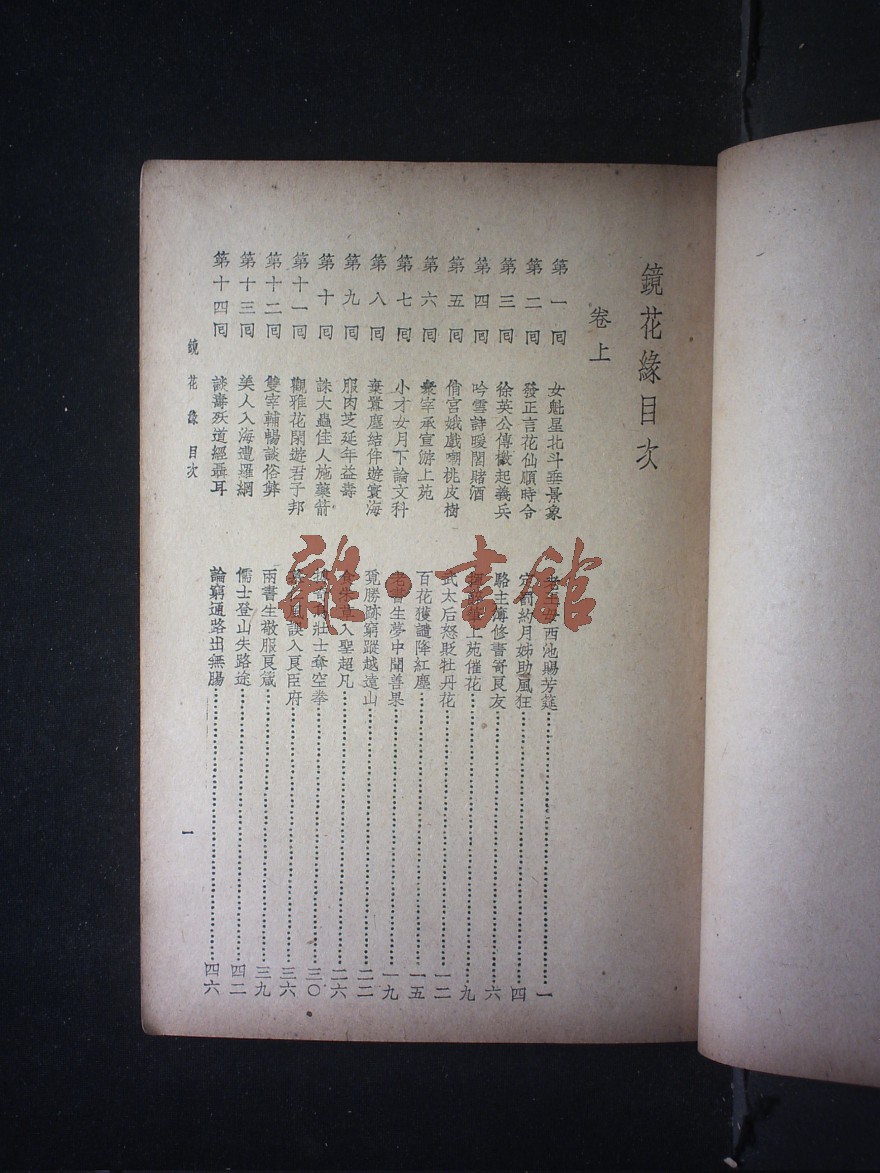 鏡花緣目次
卷上
第一回 女魁星北斗垂景象 老王母西池賜芳筵 一
第二回 發正言花仙順時令 定罰約月姊助風狂 四
第三回 徐英公傳檄起義兵 駱主簿修書寄良友 六
第四回 吟雪詩暖閣賭酒 上苑催花 九
第五回 俏宮娥戲嘲桃皮樹 武太后怒貶牡丹花 一二
第六回 衆宰承宣游上苑 百花獲譴降紅塵 一五
第七回 小才女月下論文科 老書生夢中聞善果 一九
第八回 棄囂塵結伴遊寰海 覓勝跡窮蹤越遠山 二二
第九回 服肉芝延年益壽 食朱草入聖超凡 二六
第十回 誅大蟲佳人施藥箭 壯士奮空拳 三〇
第十一回 觀雅花閑遊君子邦 風誤入良臣府 三六
第十二回 雙宰輔暢談俗弊 兩書生敬服良箴 三九
第十三回 美人入海遭羅網 儒士登山失路途 四二
第十四回 談壽殀道經聶耳 論窮通路出無腸 四六
鏡花緣目次
一
雜·書館